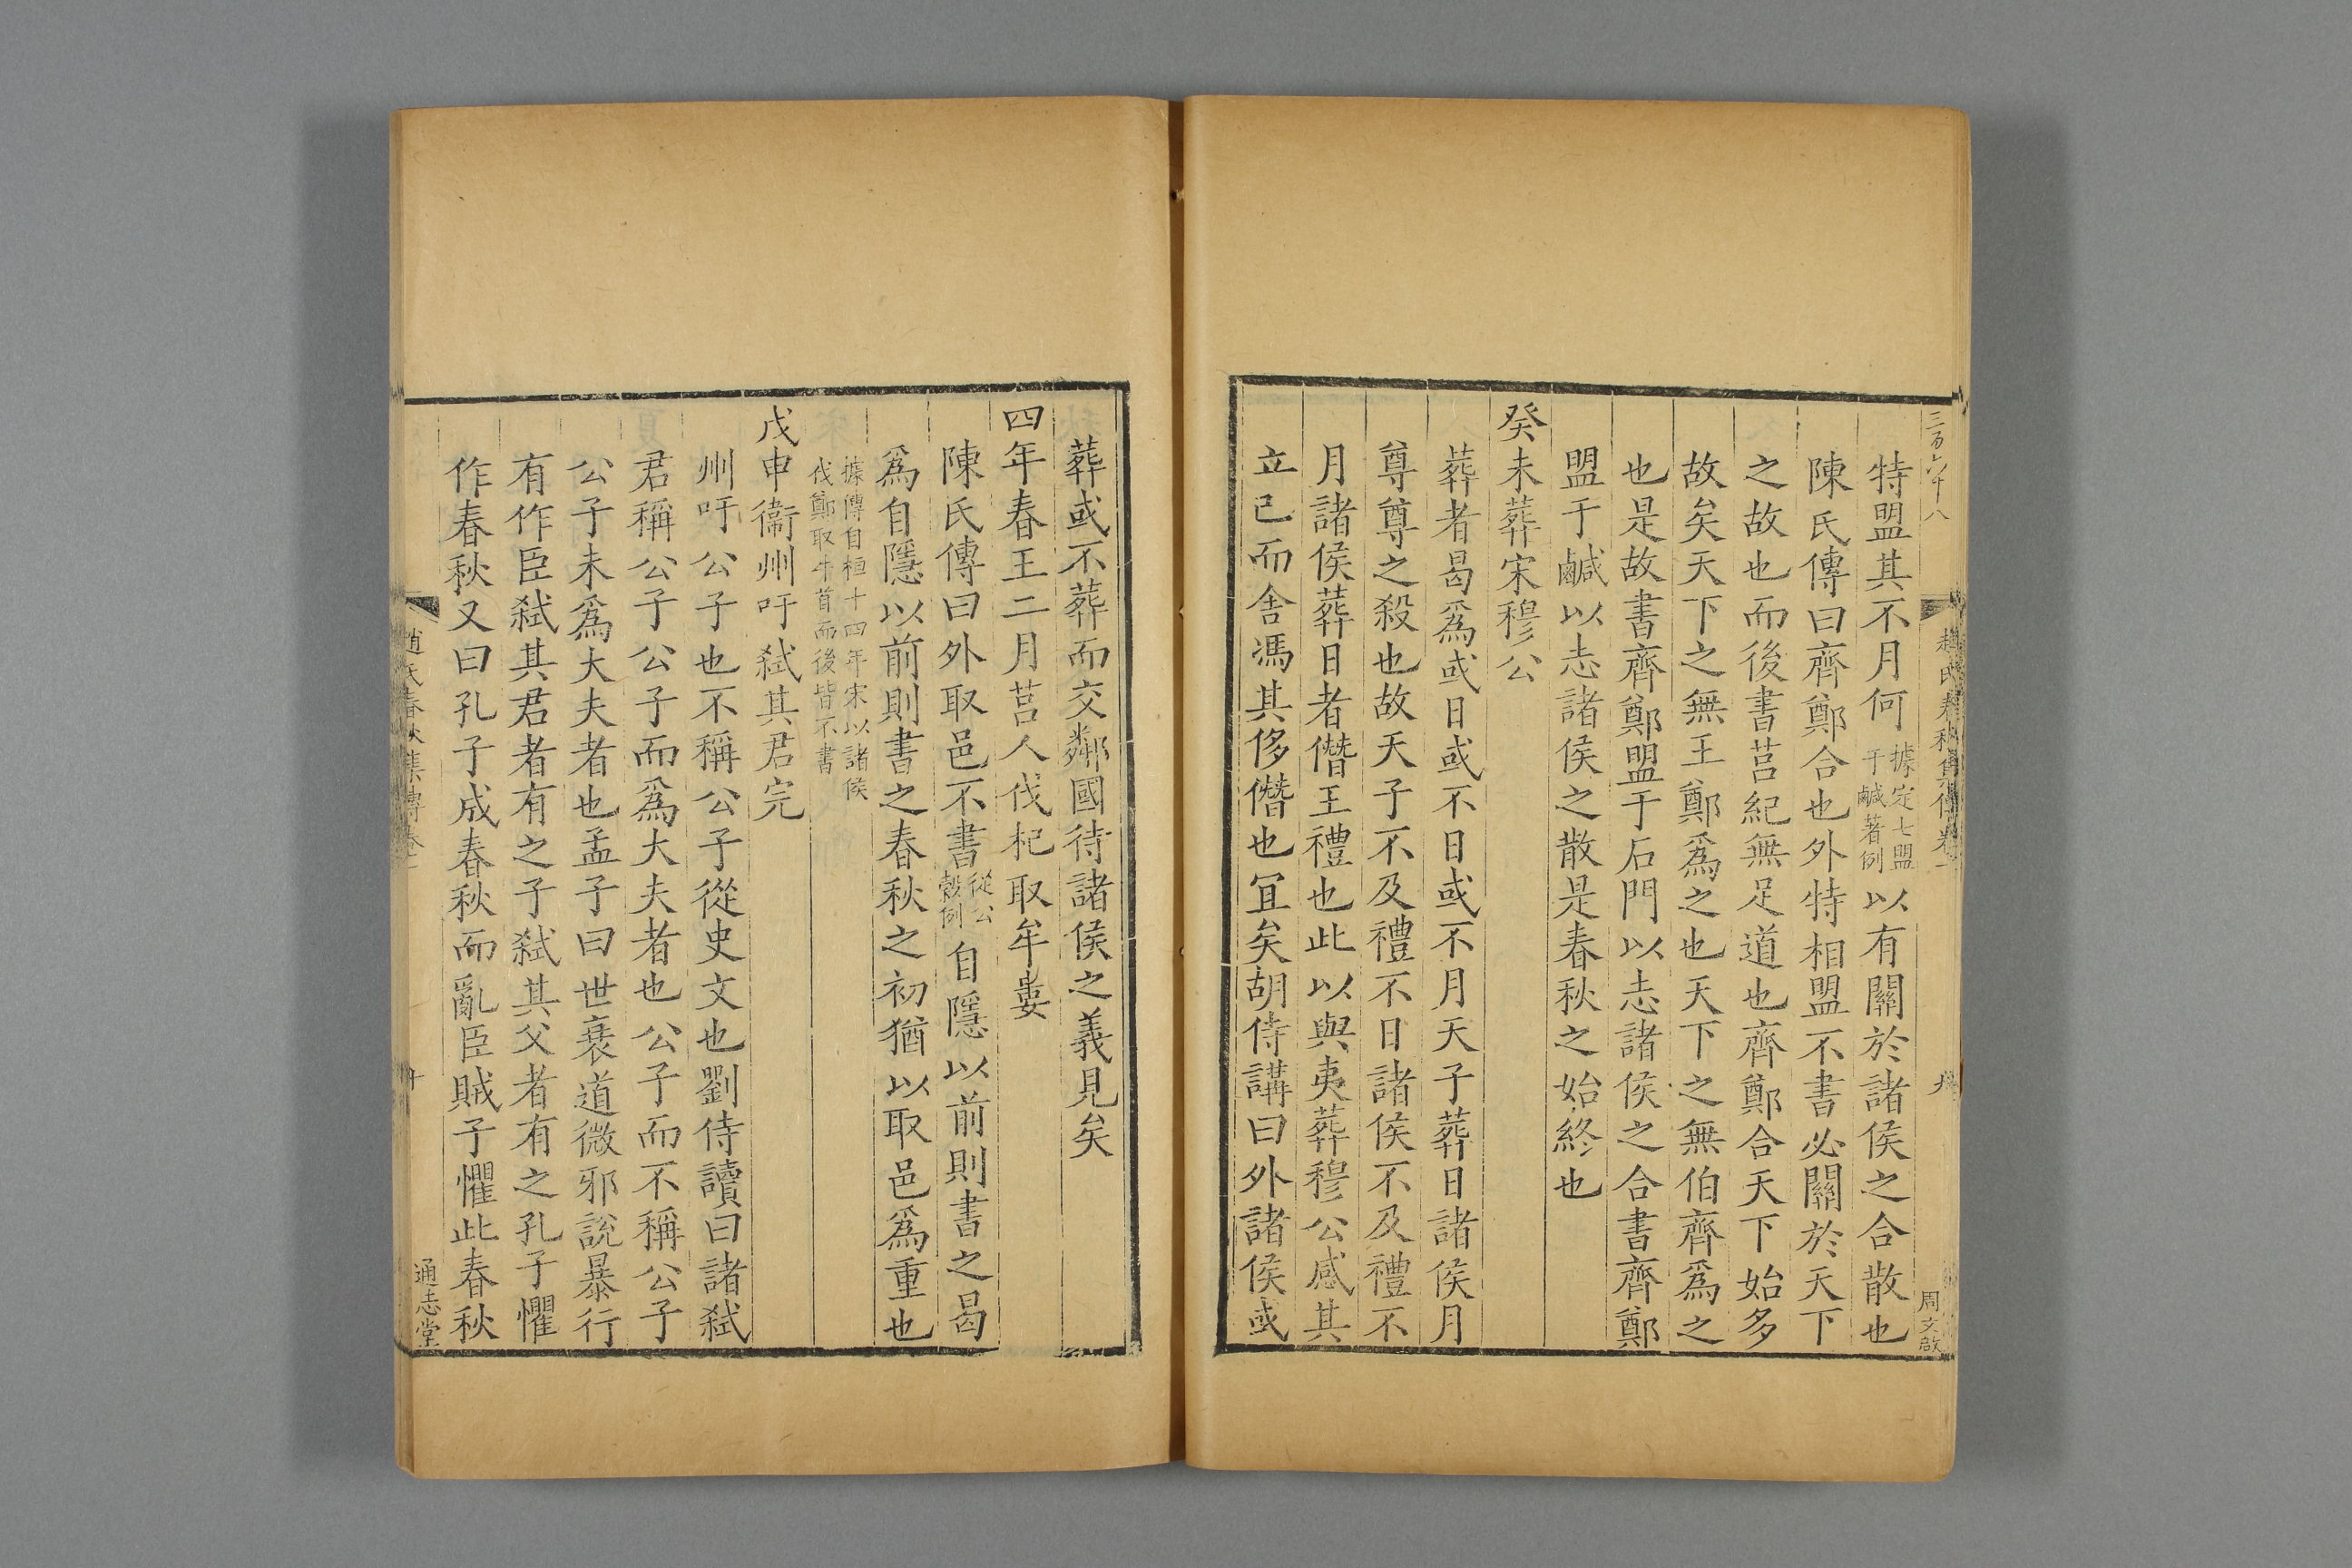 三百六十八
趙氏春秋集傳卷一
九
周文啟
特盟其不月何據定七盟于鹹著例以有關於諸侯之合散也
陳氏傳曰齊鄭合也外特相盟不書必關於天下
之故也而後書莒紀無足道也齊鄭合天下始多
故矣天下之無王鄭爲之也天下之無伯齊爲之
也是故書齊鄭盟于石門以志諸侯之合書齊鄭
盟于鹹以志諸侯之散是春秋之始終也
癸未葬宋穆公
葬者曷爲或日或不日或不月天子葬日諸侯月
尊尊之殺也故天子不及禮不日諸侯不及禮不
月諸侯葬日者僭王禮也此以與夷葬穆公感其
立己而舍馮其侈僭也冝矣胡侍講曰外諸侯或
葬或不葬而交鄰國待諸侯之義見矣
四年春王二月莒人伐杞取牟婁
陳氏傳曰外取邑不書從公穀例自隱以前則書之曷
爲自隱以前則書之春秋之初猶以取邑爲重也
據傳自桓十四年宋以諸侯
伐鄭取牛首而後皆不書
戊申衞州吁弑其君完
州吁公子也不稱公子從史文也劉侍讀曰諸弑
君稱公子公子而爲大夫者也公子而不稱公子
公子未爲大夫者也孟子曰世衰道微邪說暴行
有作臣弑其君者有之子弑其父者有之孔子懼
作春秋又曰孔子成春秋而亂臣賊子懼此春秋
趙氏春秋集傳卷一
十
通志堂